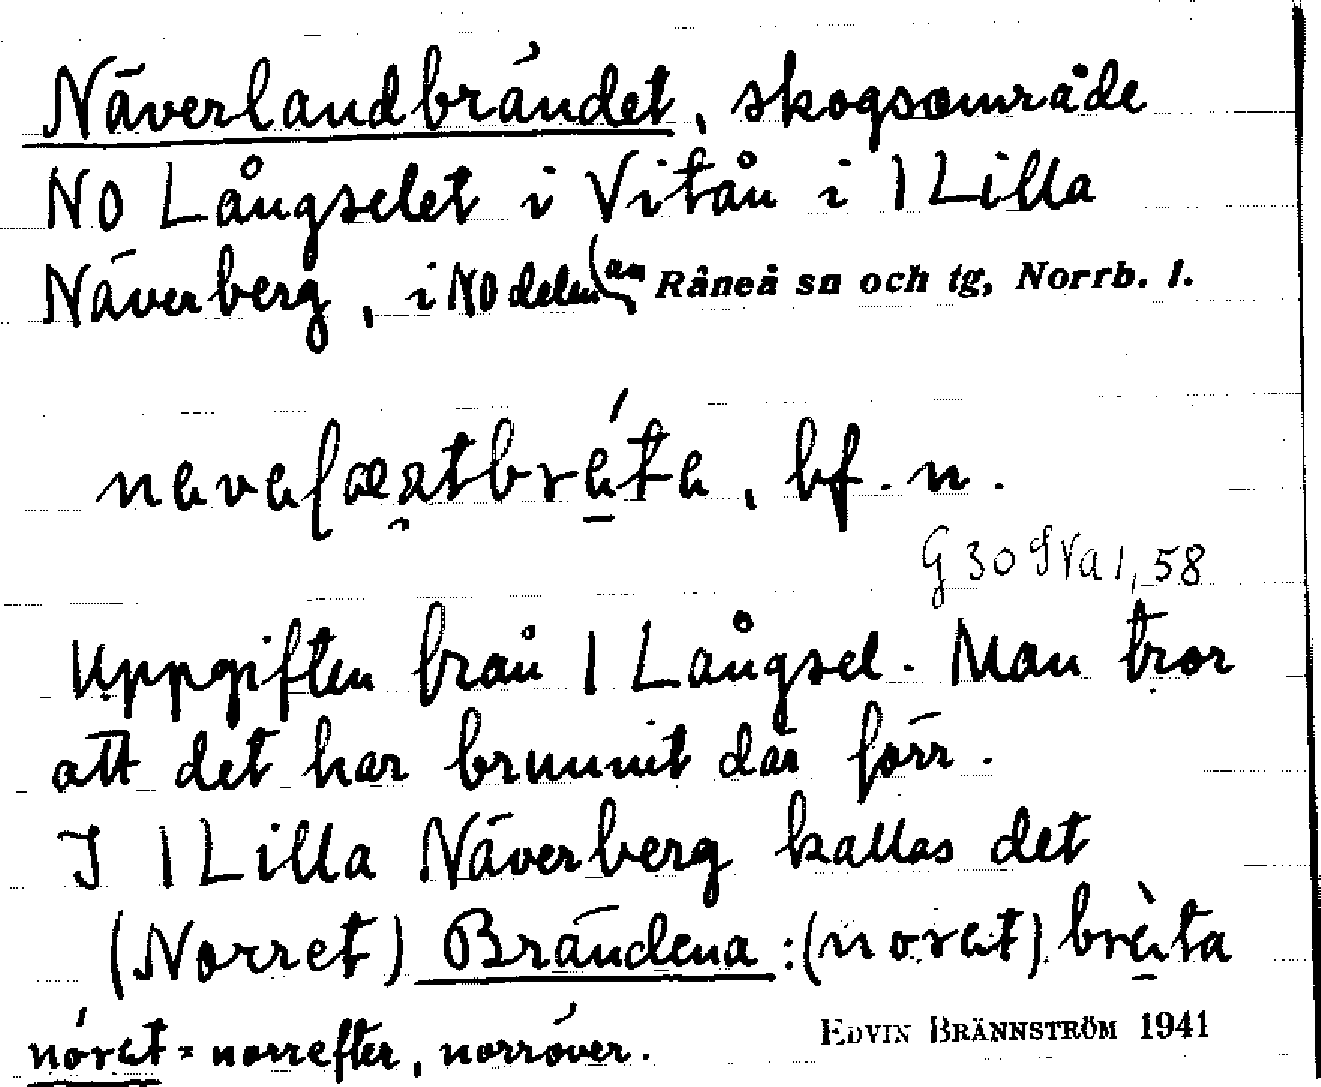 Näverlandbrändet, skogsområde
NO Långselet i Vitån i 1 Lilla
Näverberg, i NO delen (an Råneå sn och tg, Norrb. l.
bf. n.
G 30 SVa 1, 58
Uppgiften från 1 Långsel. Man tror
att det har brunnit där förr.
I 1 Lilla Näverberg kallas det
(Norret) Brändena : (norat) brèta
nórat = norrefter, norröver.
EDVIN BRÄNNSTRÖM 1941